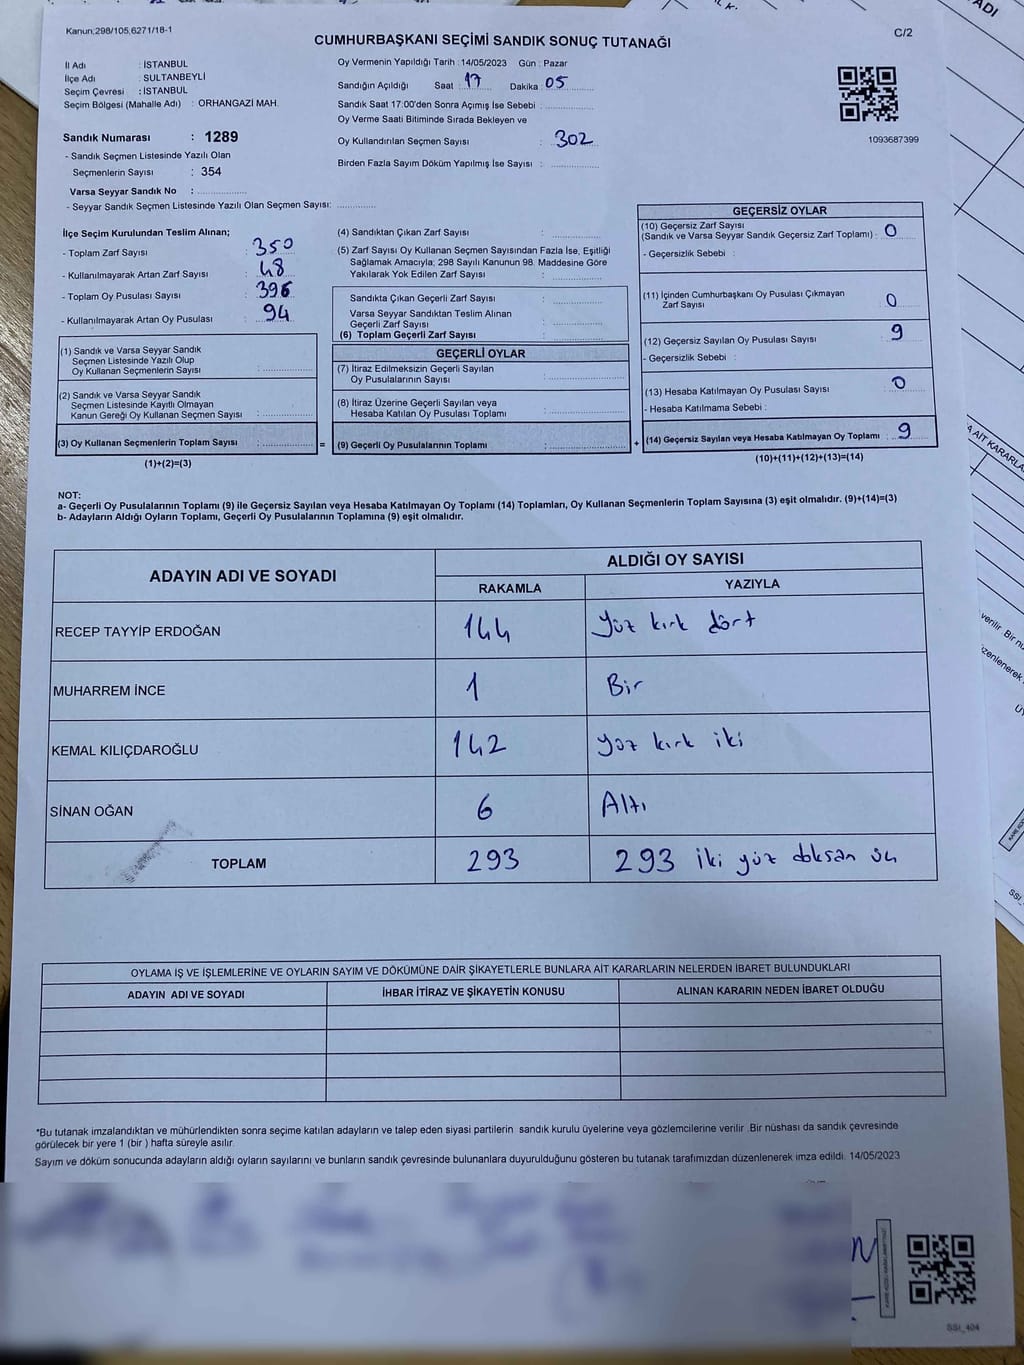 Kanun;298/105,6271/18-1
C/2
CUMHURBAŞKANI SEÇİMİ SANDIK SONUÇ TUTANAĞI
İl Adı : İSTANBUL
İlçe Adı : SULTANBEYLİ
Seçim Çevresi : İSTANBUL
Seçim Bölgesi (Mahalle Adı) : ORHANGAZİ MAH.
Sandık Numarası : 1289
- Sandık Seçmen Listesinde Yazılı Olan
Seçmenlerin Sayısı : 354
Varsa Seyyar Sandık No :
- Seyyar Sandık Seçmen Listesinde Yazılı Olan Seçmen Sayısı:
Oy Vermenin Yapıldığı Tarih : 14/05/2023 Gün : Pazar
Sandığın Açıldığı Saat : 17 Dakika : 05
Sandık Saat 17:00'den Sonra Açılmış İse Sebebi :
Oy Verme Saati Bitiminde Sırada Bekleyen ve
Oy Kullandırılan Seçmen Sayısı : 302
Birden Fazla Sayım Döküm Yapılmış İse Sayısı :
1093687399
İlçe Seçim Kurulundan Teslim Alınan;
- Toplam Zarf Sayısı : 350
- Kullanılmayarak Artan Zarf Sayısı : 48
- Toplam Oy Pusulası Sayısı : 396
- Kullanılmayarak Artan Oy Pusulası : 94
(1) Sandık ve Varsa Seyyar Sandık
Seçmen Listesinde Yazılı Olup
Oy Kullanan Seçmenlerin Sayısı :
(2) Sandık ve Varsa Seyyar Sandık
Seçmen Listesinde Kayıtlı Olmayan
Kanun Gereği Oy Kullanan Seçmen Sayısı :
(3) Oy Kullanan Seçmenlerin Toplam Sayısı :
(1)+(2)=(3)
(4) Sandıktan Çıkan Zarf Sayısı :
(5) Zarf Sayısı Oy Kullanan Seçmen Sayısından Fazla İse, Eşitliği
Sağlamak Amacıyla; 298 Sayılı Kanunun 98. Maddesine Göre
Yakılarak Yok Edilen Zarf Sayısı :
Sandıkta Çıkan Geçerli Zarf Sayısı :
Varsa Seyyar Sandıktan Teslim Alınan
Geçerli Zarf Sayısı :
(6) Toplam Geçerli Zarf Sayısı :
GEÇERLİ OYLAR
(7) İtiraz Edilmeksizin Geçerli Sayılan
Oy Pusulalarının Sayısı :
(8) İtiraz Üzerine Geçerli Sayılan veya
Hesaba Katılan Oy Pusulası Toplamı :
= (9) Geçerli Oy Pusulalarının Toplamı :
GEÇERSİZ OYLAR
(10) Geçersiz Zarf Sayısı
(Sandık ve Varsa Seyyar Sandık Geçersiz Zarf Toplamı) : 0
- Geçersizlik Sebebi :
(11) İçinden Cumhurbaşkanı Oy Pusulası Çıkmayan
Zarf Sayısı : 0
(12) Geçersiz Sayılan Oy Pusulası Sayısı : 9
- Geçersizlik Sebebi :
(13) Hesaba Katılmayan Oy Pusulası Sayısı : 0
- Hesaba Katılmama Sebebi :
+ (14) Geçersiz Sayılan veya Hesaba Katılmayan Oy Toplamı : 9
(10)+(11)+(12)+(13)=(14)
NOT:
a- Geçerli Oy Pusulalarının Toplamı (9) ile Geçersiz Sayılan veya Hesaba Katılmayan Oy Toplamı (14) Toplamları, Oy Kullanan Seçmenlerin Toplam Sayısına (3) eşit olmalıdır. (9)+(14)=(3)
b- Adayların Aldığı Oyların Toplamı, Geçerli Oy Pusulalarının Toplamına (9) eşit olmalıdır.
ADAYIN ADI VE SOYADI
ALDIĞI OY SAYISI
RAKAMLA YAZIYLA
RECEP TAYYİP ERDOĞAN 144 yüz kırk dört
MUHARREM İNCE 1 Bir
KEMAL KILIÇDAROĞLU 142 yüz kırk iki
SİNAN OĞAN 6 Altı
TOPLAM 293 293 iki yüz doksan üç
OYLAMA İŞ VE İŞLEMLERİNE VE OYLARIN SAYIM VE DÖKÜMÜNE DAİR ŞİKAYETLERLE BUNLARA AİT KARARLARIN NELERDEN İBARET BULUNDUKLARI
ADAYIN ADI VE SOYADI İHBAR İTİRAZ VE ŞİKAYETİN KONUSU ALINAN KARARIN NEDEN İBARET OLDUĞU
*Bu tutanak imzalandıktan ve mühürlendikten sonra seçime katılan adayların ve talep eden siyasi partilerin sandık kurulu üyelerine veya gözlemcilerine verilir .Bir nüshası da sandık çevresinde
görülecek bir yere 1 (bir ) hafta süreyle asılır.
Sayım ve döküm sonucunda adayların aldığı oyların sayılarını ve bunların sandık çevresinde bulunanlara duyurulduğunu gösteren bu tutanak tarafımızdan düzenlenerek imza edildi. 14/05/2023
SSI_404
ADI
AİT KARARLA
verilir .Bir nü
zenlenerek
SSI_